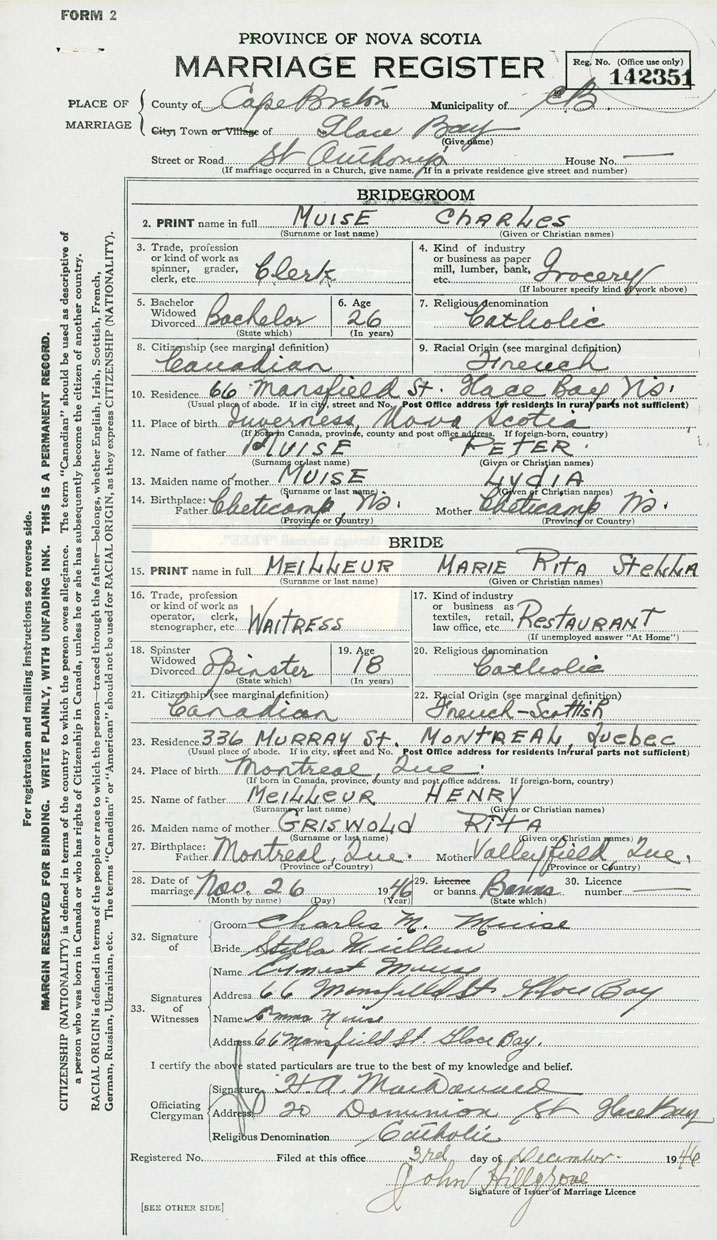 FORM 2
PROVINCE OF NOVA SCOTIA
MARRIAGE REGISTER
Reg. No. (Office use only)
142351
PLACE OF MARRIAGE
County of Cape Breton Municipality of C B.
City, Town or Village of Glace Bay
(Give name)
Street or Road St Anthony's House No. —
(If marriage occurred in a Church, give name. If in a private residence give street and number)
BRIDEGROOM
2. PRINT name in full MUISE CHARLES
(Surname or last name) (Given or Christian names)
3. Trade, profession or kind of work as spinner, grader, clerk, etc. Clerk
4. Kind of industry or business as paper mill, lumber, bank, etc. Grocery
(If labourer specify kind of work above)
5. Bachelor Widowed Divorced Bachelor (State which)
6. Age 26 (In years)
7. Religious denomination Catholic
8. Citizenship (see marginal definition) Canadian
9. Racial Origin (see marginal definition) French
10. Residence 66 Mansfield St. Glace Bay, N.S.
(Usual place of abode. If in city, street and No. Post Office address for residents in rural parts not sufficient)
11. Place of birth Inverness, Nova Scotia
(If born in Canada, province, county and post office address. If foreign-born, country)
12. Name of father MUISE PETER
(Surname or last name) (Given or Christian names)
13. Maiden name of mother MUISE LYDIA
(Surname or last name) (Given or Christian names)
14. Birthplace: Father Cheticamp, N.S. Mother Cheticamp N.S.
(Province or Country) (Province or Country)
BRIDE
15. PRINT name in full MEILLEUR MARIE RITA STELLA
(Surname or last name) (Given or Christian names)
16. Trade, profession or kind of work as operator, clerk, stenographer, etc WAITRESS
17. Kind of industry or business as textiles, retail, law office, etc. RESTAURANT
(If unemployed answer "At Home")
18. Spinster Widowed Divorced Spinster (State which)
19. Age 18 (In years)
20. Religious denomination Catholic
21. Citizenship (see marginal definition) Canadian
22. Racial Origin (see marginal definition) French-Scottish
23. Residence 336 MURRAY St. MONTREAL, Quebec
(Usual place of abode. If in city, street and No. Post Office address for residents in rural parts not sufficient)
24. Place of birth Montreal, Que.
(If born in Canada, province, county and post office address. If foreign-born, country)
25. Name of father MEILLEUR HENRY
(Surname or last name) (Given or Christian names)
26. Maiden name of mother GRISWOLD RITA
(Surname or last name) (Given or Christian names)
27. Birthplace: Father Montreal, Que. Mother Valleyfield, Que.
(Province or Country) (Province or Country)
28. Date of marriage Nov. 26 1946
(Month by name) (Day) (Year)
29. Licence or banns Banns (State which)
30. Licence number —
32. Signature of
Groom Charles M. Muise
Bride Stella
33. Signatures of Witnesses
Name Ernest Muise
Address 66 Mansfield St Glace Bay
Name Emma Muise
Address 66 Mansfield St. Glace Bay.
I certify the above stated particulars are true to the best of my knowledge and belief.
Officiating Clergyman
Signature H A. MacDonald
Address 20 Dominion St Glace Bay
Religious Denomination Catholic
Registered No. Filed at this office 3rd day of December 1946
John Hillgrove
Signature of Issuer of Marriage Licence
[SEE OTHER SIDE]
For registration and mailing instructions see reverse side.
MARGIN RESERVED FOR BINDING. WRITE PLAINLY, WITH UNFADING INK. THIS IS A PERMANENT RECORD.
CITIZENSHIP (NATIONALITY) is defined in terms of the country to which the person owes allegiance. The term "Canadian" should be used as descriptive of
a person who was born in Canada or who has rights of Citizenship in Canada, unless he or she has subsequently become the citizen of another country.
RACIAL ORIGIN is defined in terms of the people or race to which the person—traced through the father—belongs, whether English, Irish, Scottish, French,
German, Russian, Ukrainian, etc. The terms "Canadian" or "American" should not be used for RACIAL ORIGIN, as they express CITIZENSHIP (NATIONALITY).